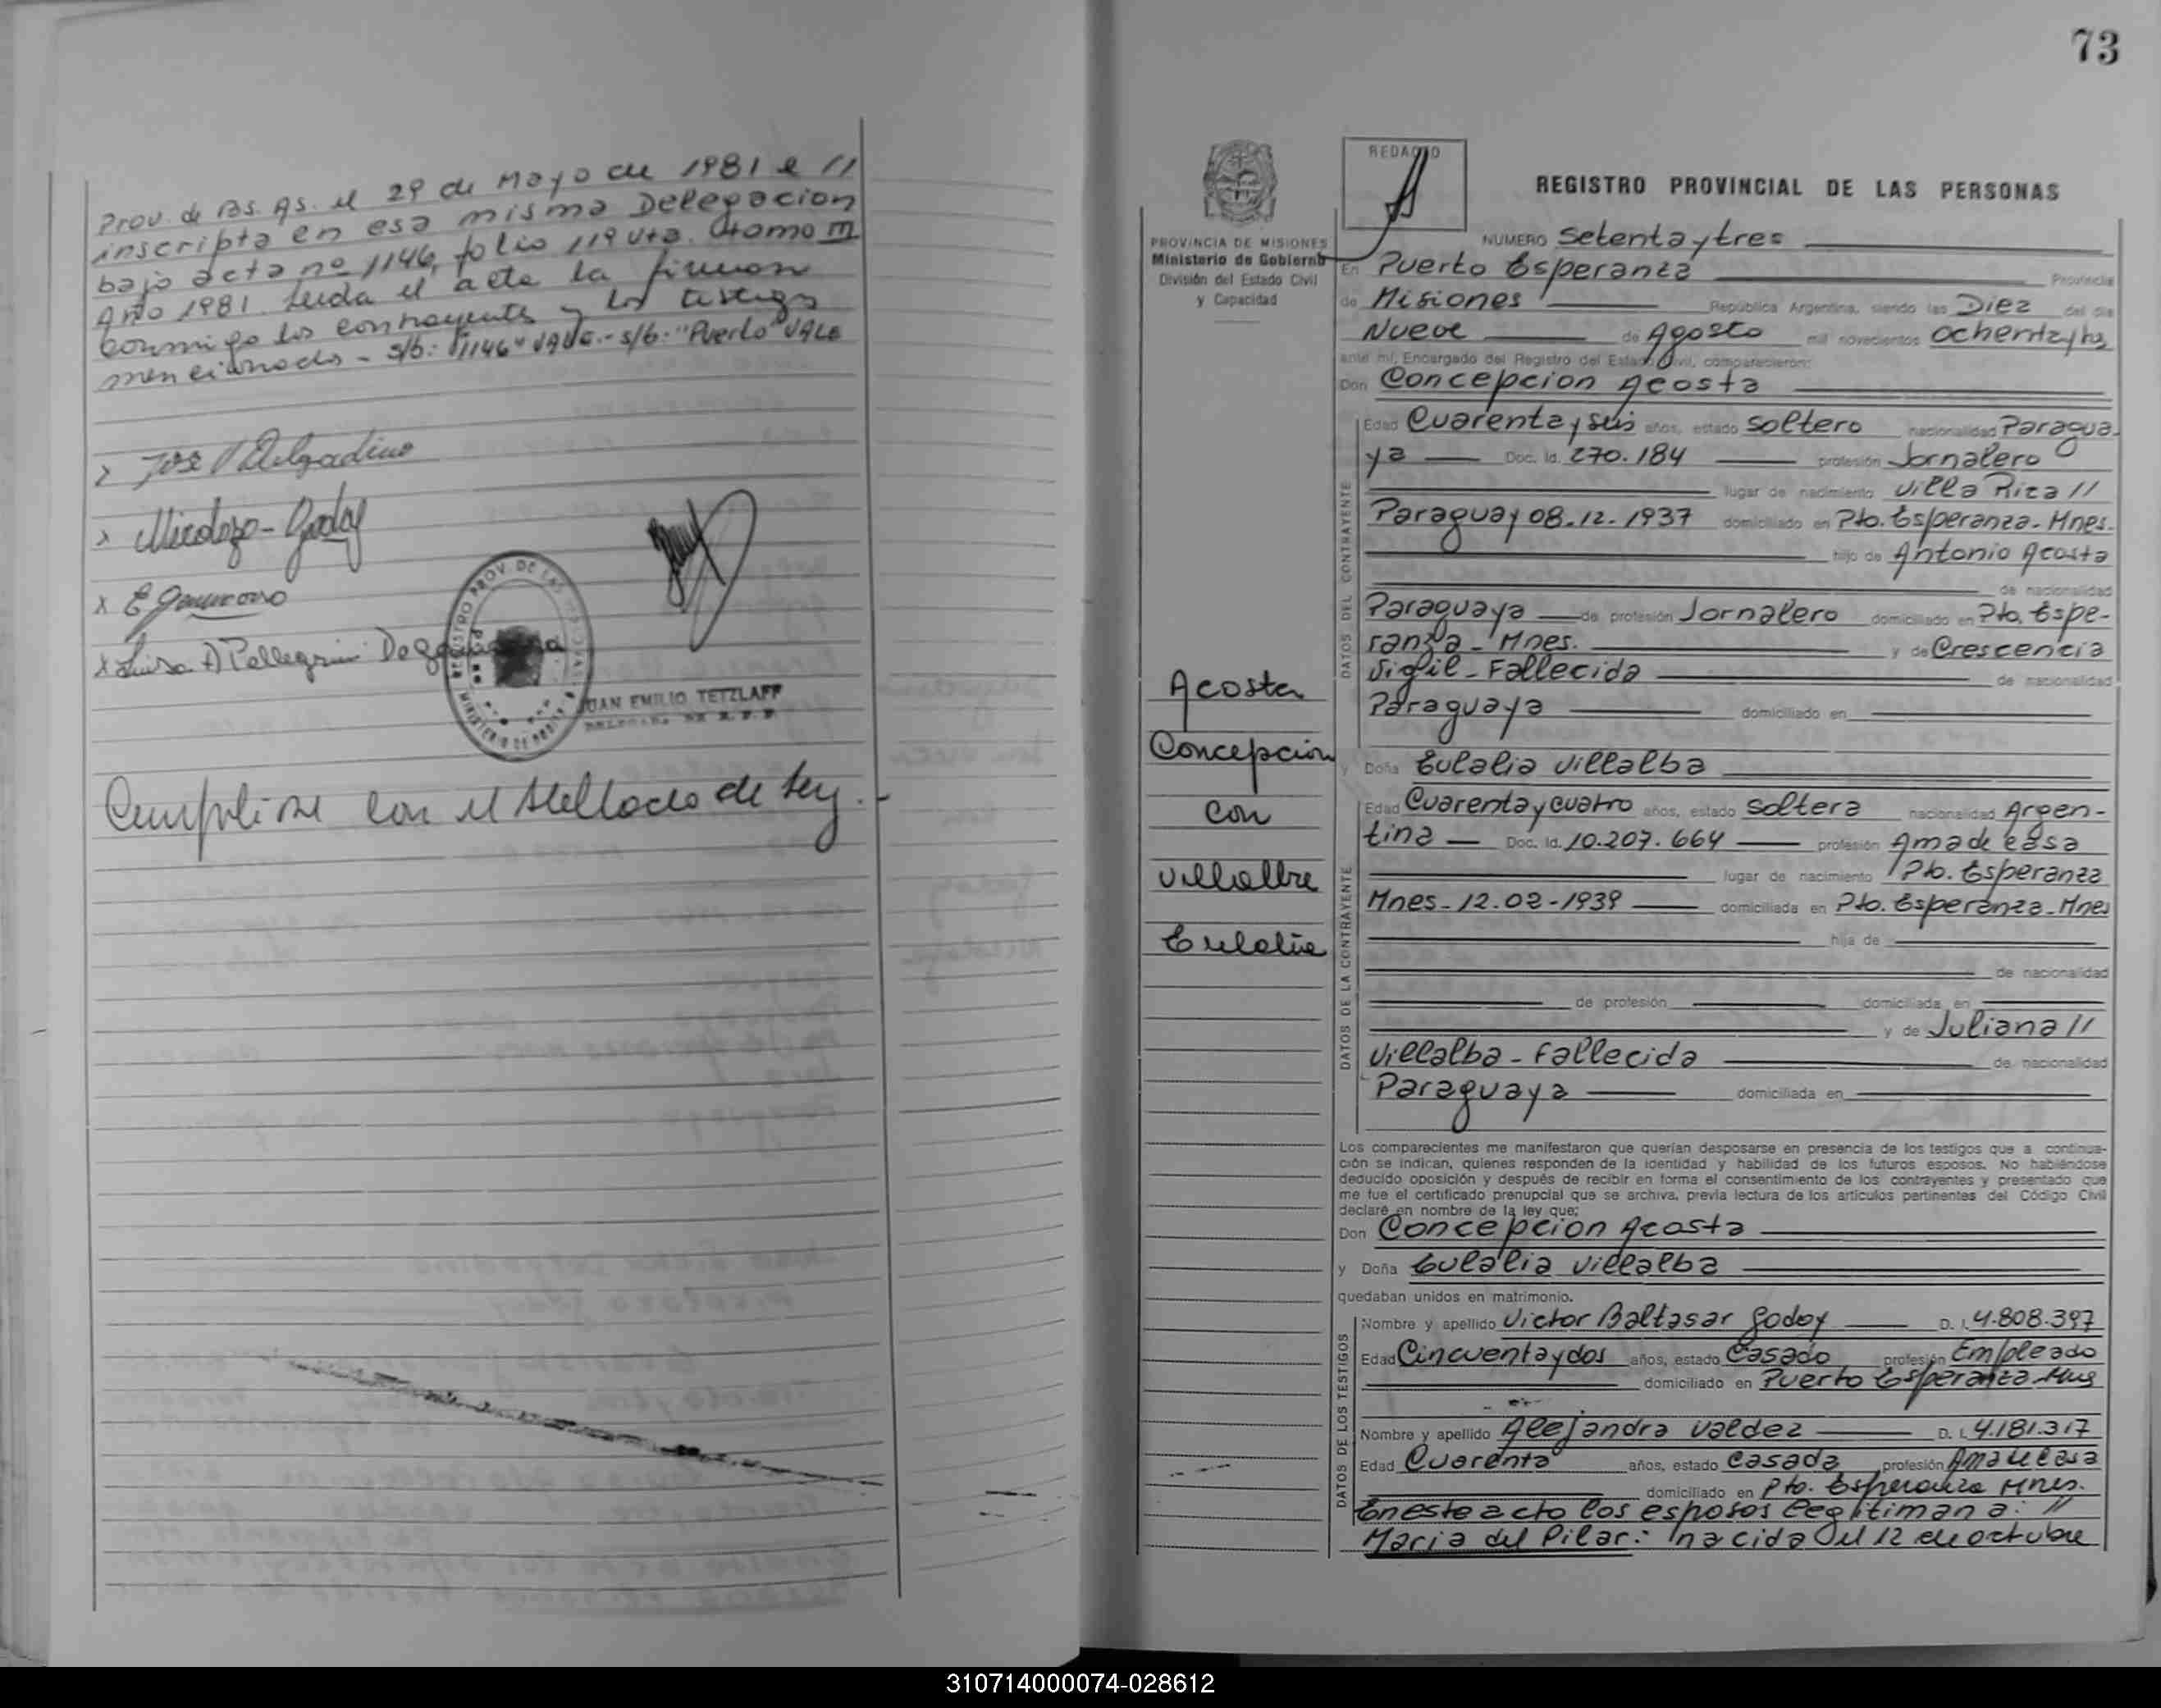 Prov. de Bs. As. el 29 de Mayo de 1981 e //
inscripta en esa misma Delegacion
bajo acta nº 1146, folio 119 vta. tomo III
Año 1981. Leida el acta la firman
conmigo los contrayentes y los testigos
mencionados - s/b: "1146" VALE.- s/b: "Puerto" VALE
José Delgadino
Nicolaza - Godoy
Luisa A Pellegrini De
REGISTRO PROV. DE LAS
JUAN EMILIO TETZLAFF
Cumplirse con el sellado de Ley.-
73
REDADO
REGISTRO PROVINCIAL DE LAS PERSONAS
PROVINCIA DE MISIONES
Ministerio de Gobierno
División del Estado Civil
y Capacidad
NUMERO Setenta y tres
En Puerto Esperanza Provincia
de Misiones República Argentina, siendo las Diez del día
Nueve de Agosto mil novecientos Ochenta y
ante mí, Encargado del Registro del Estado Civil, comparecieron:
Don Concepcion Acosta
Edad Cuarenta y seis años, estado Soltero nacionalidad Paragua-
ya Doc. Id. 270.184 profesión Jornalero
lugar de nacimiento Villa Rica //
Paraguay 08.12.1937 domiciliado en Pto. Esperanza - Mnes.
hijo de Antonio Acosta
de nacionalidad
Paraguaya de profesión Jornalero domiciliado en Pto. Espe-
ranza - Mnes. y de Crescencia
Vigil - Fallecida de nacionalidad
Paraguaya domiciliado en
DATOS DEL CONTRAYENTE
Acosta
Concepcion
con
Villalba
Eulalia
y Doña Eulalia Villalba
Edad Cuarenta y cuatro años, estado Soltera nacionalidad Argen-
tina Doc. Id. 10.207.664 profesión Ama de casa
lugar de nacimiento Pto. Esperanza
Mnes - 12.02-1939 domiciliada en Pto. Esperanza - Mnes
hija de
de nacionalidad
de profesión domiciliada en
y de Juliana //
Villalba - Fallecida de nacionalidad
Paraguaya domiciliada en
DATOS DE LA CONTRAYENTE
Los comparecientes me manifestaron que querían desposarse en presencia de los testigos que a continua-
ción se indican, quienes responden de la identidad y habilidad de los futuros esposos. No habiéndose
deducido oposición y después de recibir en forma el consentimiento de los contrayentes y presentado que
me fue el certificado prenupcial que se archiva, previa lectura de los artículos pertinentes del Código Civil
declaré en nombre de la ley que:
Don Concepcion Acosta
y Doña Eulalia Villalba
quedaban unidos en matrimonio.
Nombre y apellido Victor Baltasar Godoy D. I. 4.808.397
Edad Cincuenta y dos años, estado Casado profesión Empleado
domiciliado en Puerto Esperanza - Mnes
Nombre y apellido Alejandra Valdez D. I. 4.181.317
Edad Cuarenta años, estado Casada profesión Ama de Casa
domiciliado en Pto. Esperanza Mnes.
DATOS DE LOS TESTIGOS
En este acto los esposos legitiman a: //
Maria del Pilar: nacida el 12 de octubre
310714000074-028612